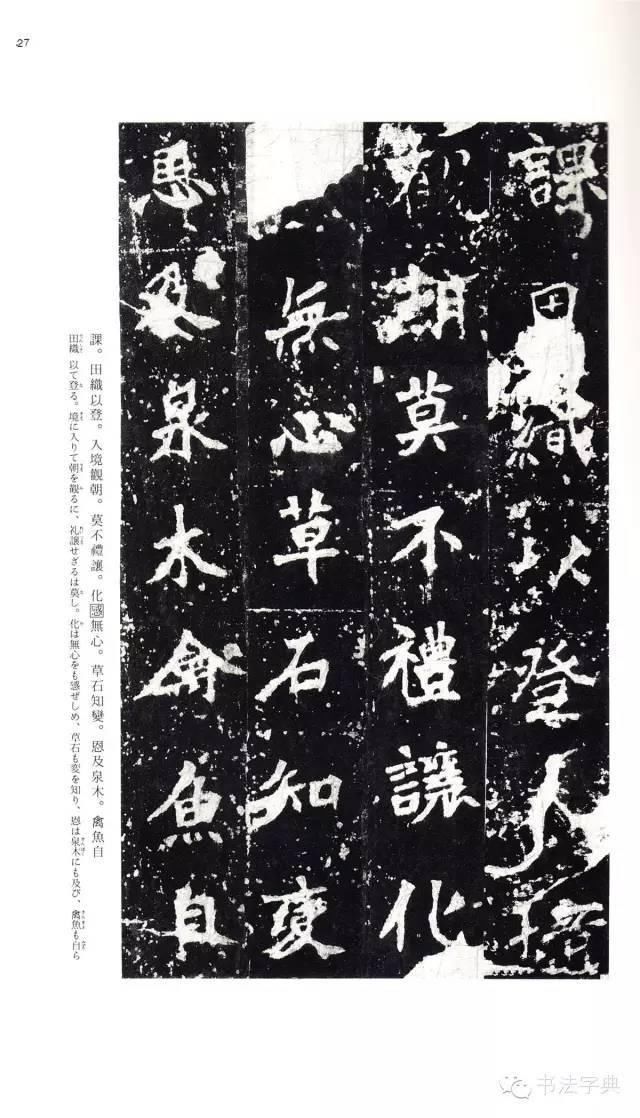 27
課田織以登入境
觀朝莫不禮讓化
無心草石知變
恩及泉木禽魚自
課。田織以登。入境觀朝。莫不禮讓。化感無心。草石知變。恩及泉木。禽魚自
田織 以て登る。境に入りて朝を観るに、礼譲せざるは莫し。化は無心をも感ぜしめ、草石も変を知り、恩は泉木にも及び、禽魚も自ら
书法字典